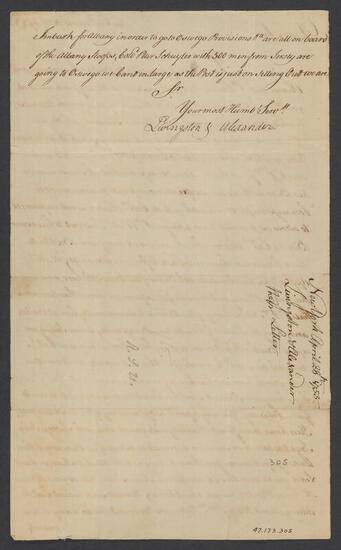 Imbark for Albany in order to go to Oswego Provisions &ca are all on board
of the Albany Sloops, Colo Peter Schuyler with 500 men from Jersey are
going to Oswego we cant enlarge as the Post is just on setting Out we are
Sr
Your most Humble Servts
Livingston & Alexander
New York April 28th 1755
Livingston & Alexander
their Letter
N. 5. 21.
305
47.173.305